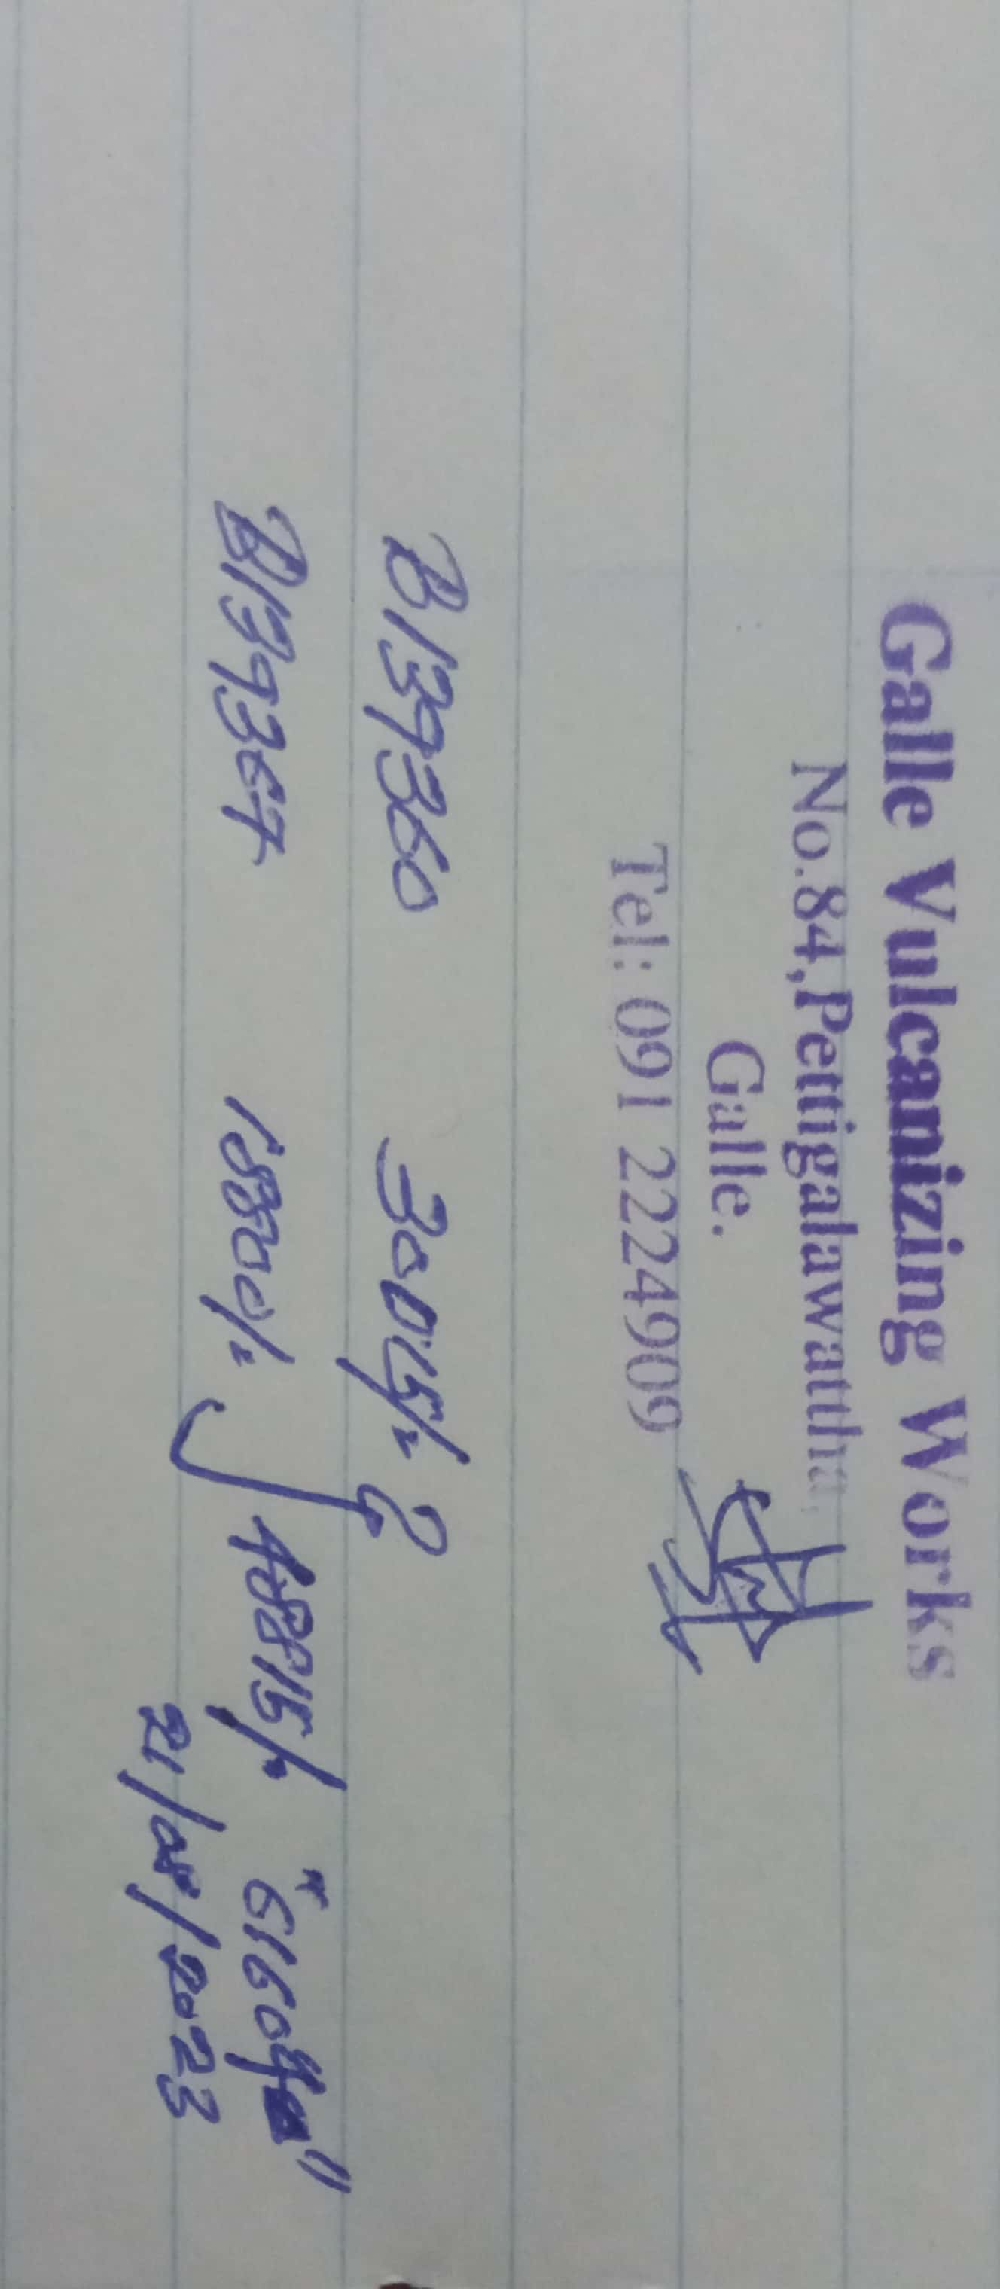 Galle Vulcanizing Works
No.84,Pettigalawattha,
Galle.
Tel: 091 2224909
B139360 30015/=
B139367 18800/=
48815/=
21/08/2023